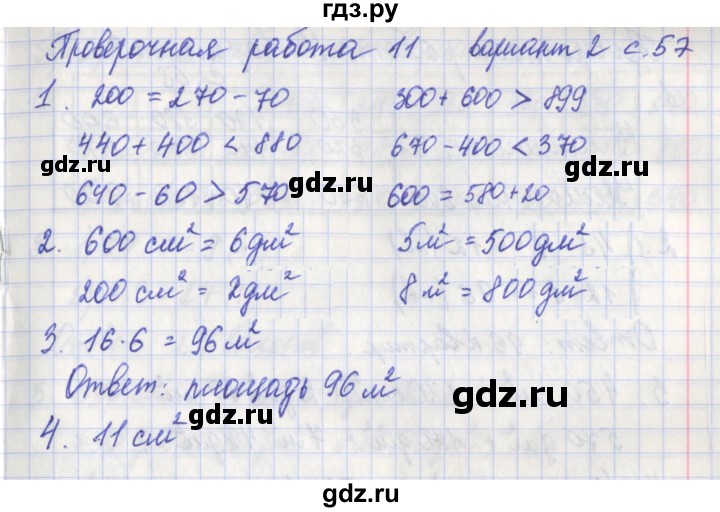 гдз.ру
Проверочная работа 11 вариант 2 с. 57
1. 200 = 270 - 70 300 + 600 > 899
440 + 400 < 880 670 - 400 < 370
gdz.ru gdz.ru
640 - 60 > 570 600 = 580 + 20
2. 600 см² = 6 дм² 5 м² = 500 дм²
200 см² = 2 дм² 8 м² = 800 дм²
3. 16 · 6 = 96 м²
Ответ: площадь 96 м²
gdz.ru gdz.ru
4. 11 см²
gdz.ru